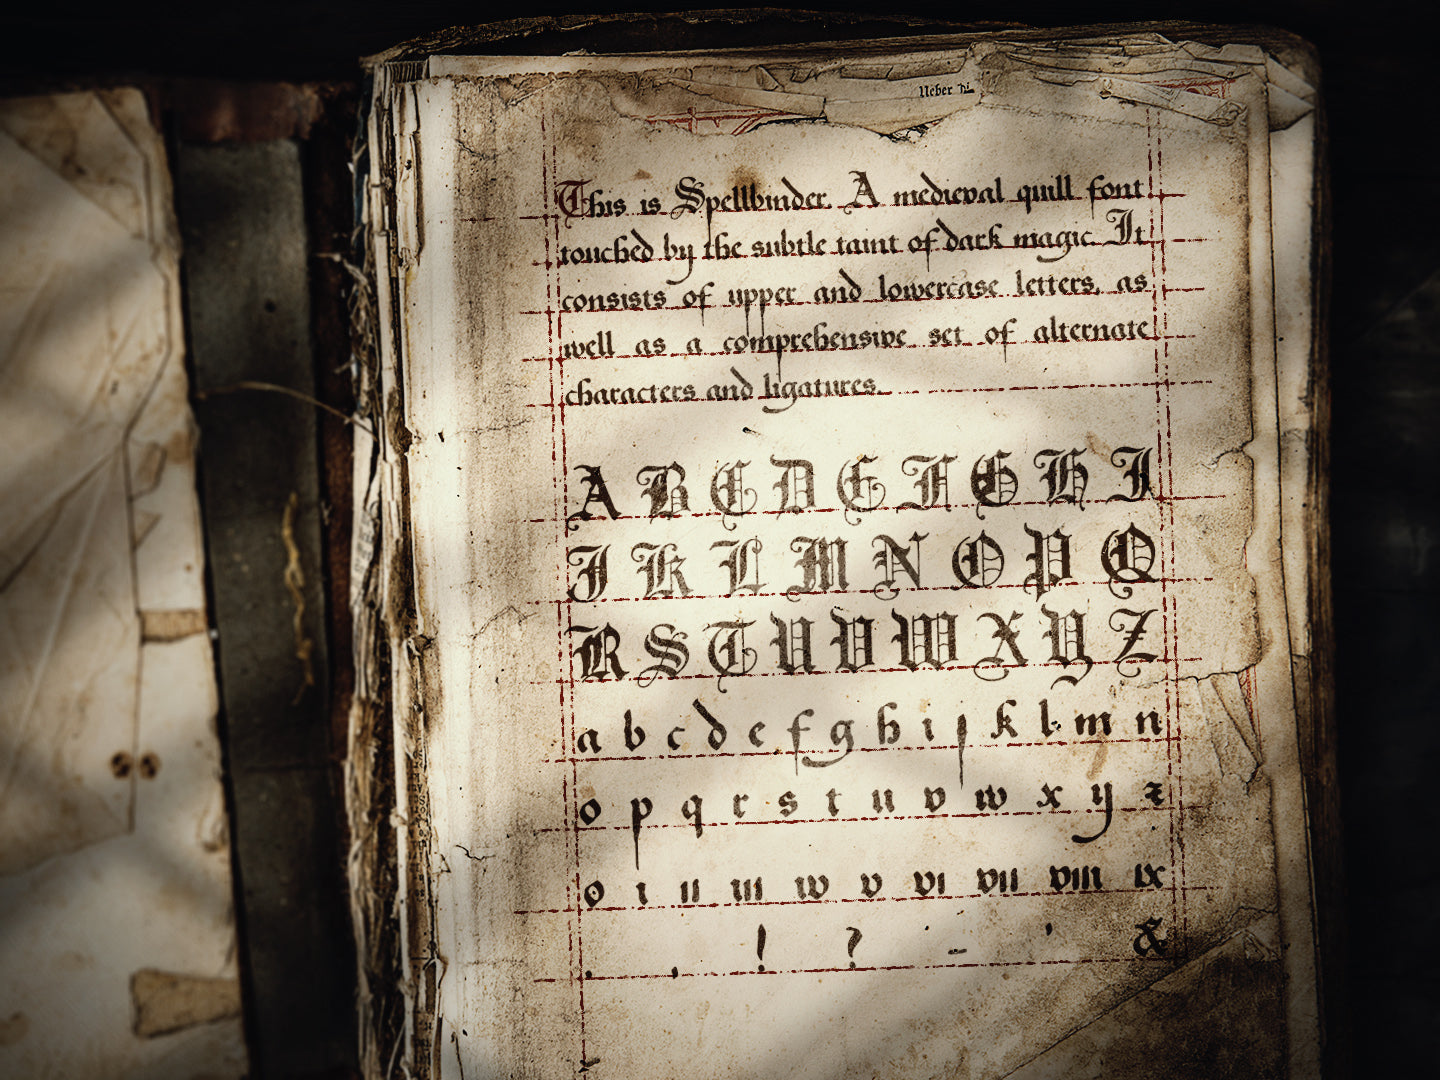 Ueber
This is Spellbinder. A medieval quill font
touched by the subtle taint of dark magic. It
consists of upper and lowercase letters, as
well as a comprehensive set of alternate
characters and ligatures.
A B C D E F G H I
J K L M N O P Q
R S T U V W X Y Z
a b c d e f g h i j k l m n
o p q r s t u v w x y z
o i ii iii iv v vi vii viii ix
. , ! ? - ' &